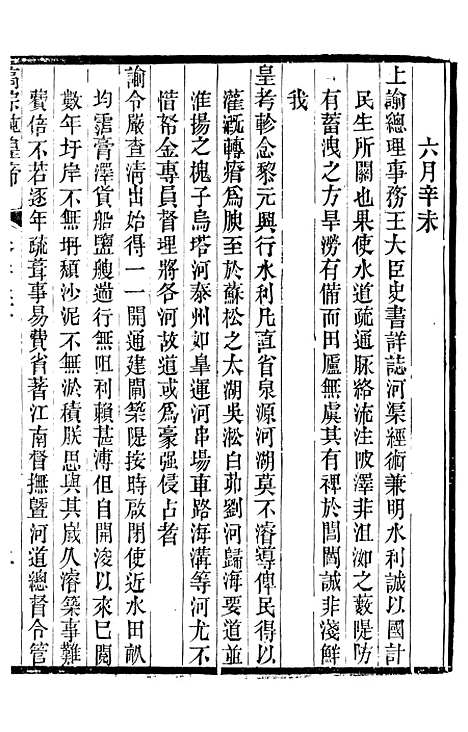 六月辛未
上諭總理事務王大臣史書詳誌河渠經術兼明水利誠以國計
民生所關也果使水道疏通脈絡流注陂澤非沮洳之藪隄防
有蓄洩之方旱澇有備而田廬無虞其有裨於閭閻誠非淺鮮
我
皇考軫念黎元興行水利凡直省泉源河湖莫不濬導俾民得以
灌溉轉瘠爲腴至於蘇松之太湖吳淞白茆劉河歸海要道並
淮揚之槐子烏塔河泰州如臯運河串場車路海溝等河尤不
惜帑金專員督理將各河故道或爲豪强侵占者
諭令嚴查清出始得一一開通建閘築隄按時啟閉使近水田畝
均霑膏澤貨船鹽艘遄行無阻利賴甚溥但自開浚以來已閱
數年圩岸不無坍頹沙泥不無淤積朕思與其嵗久濬築事難
費倍不若逐年疏葺事易費省著江南督撫曁河道總督令管
高宗純皇帝